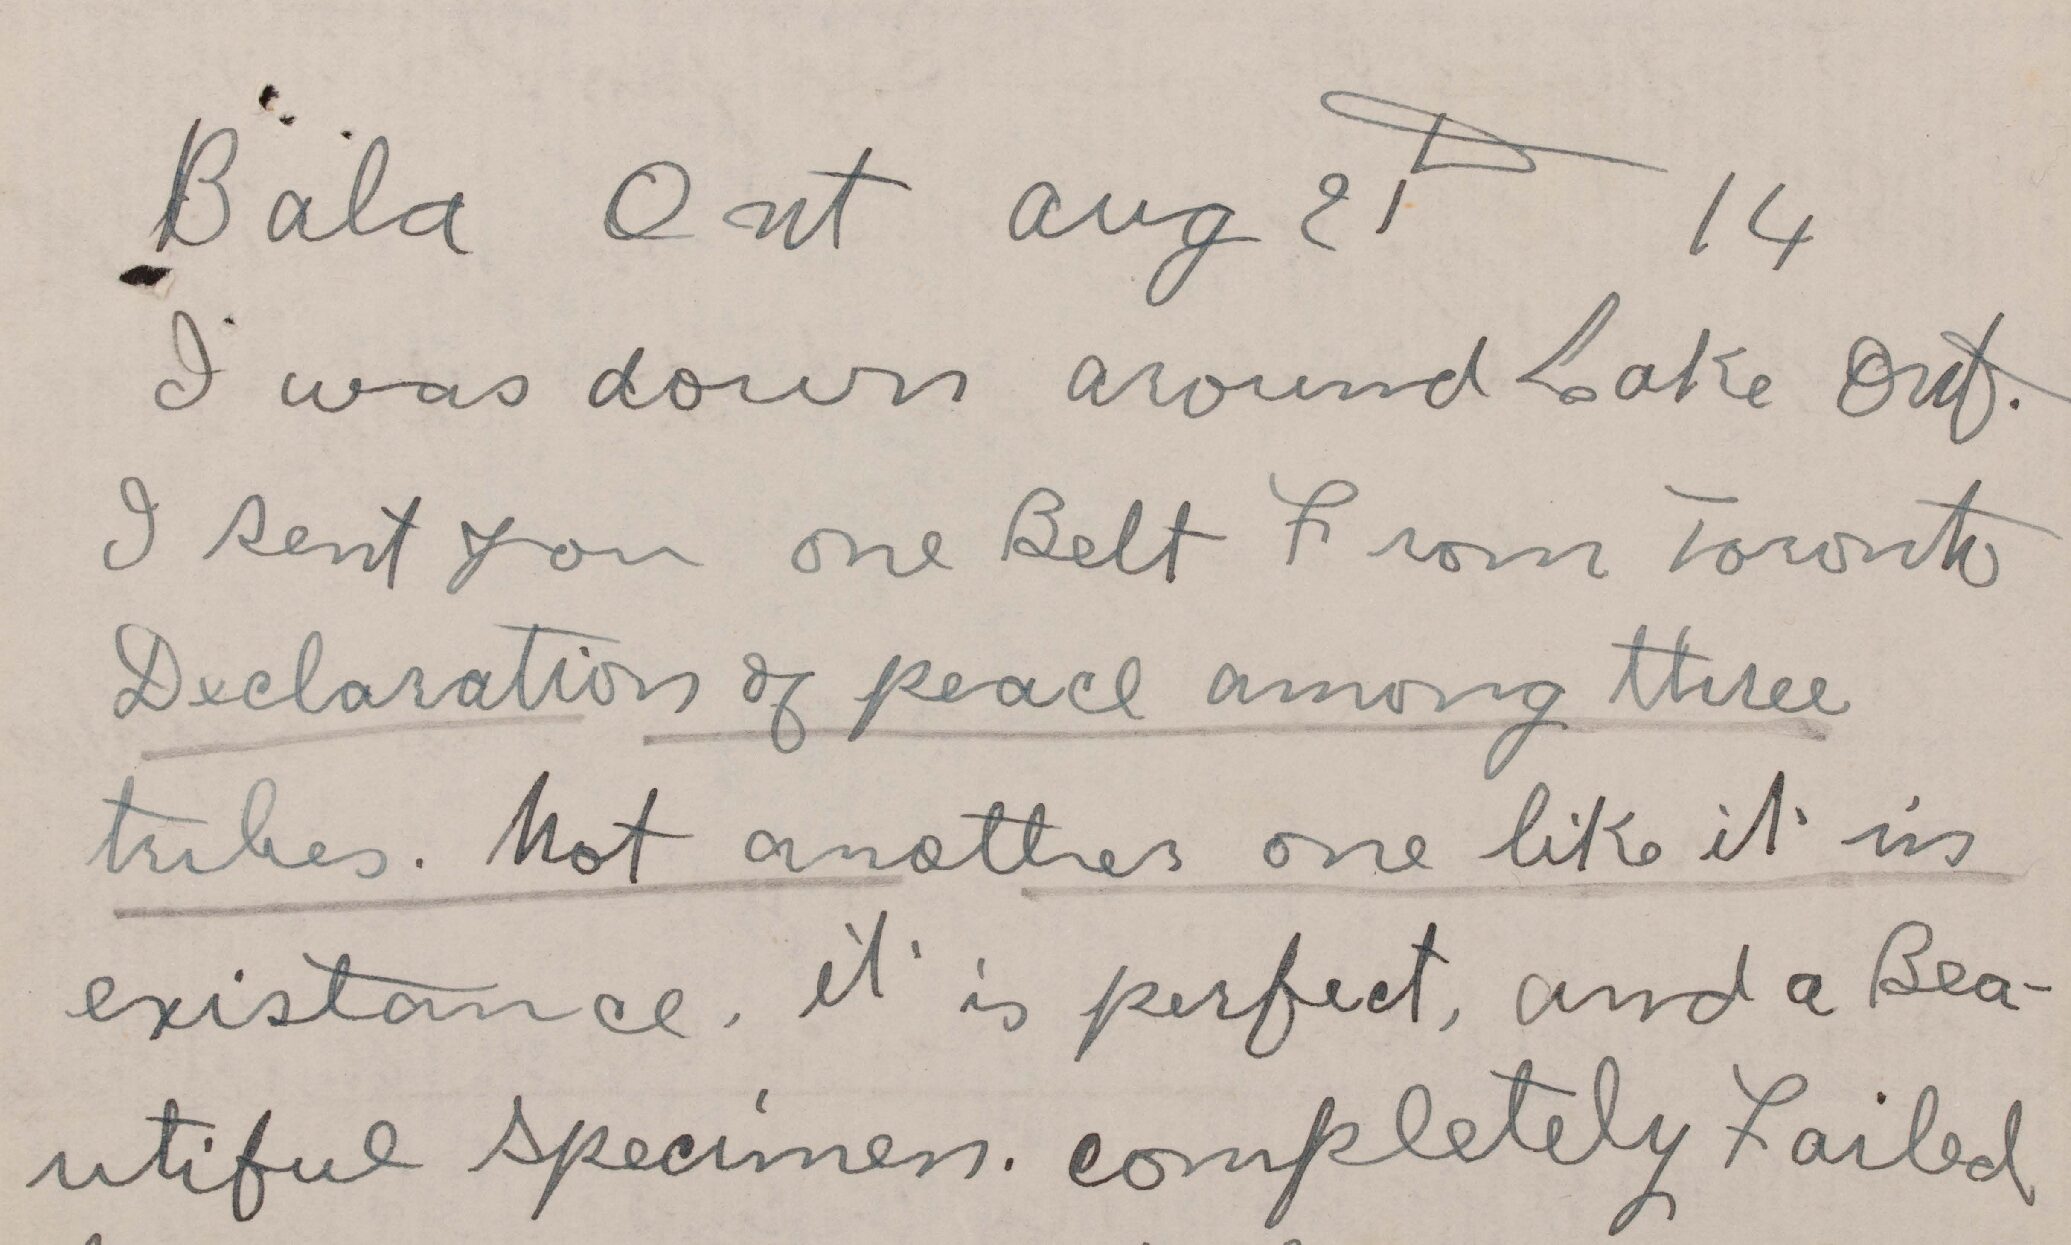 Bala Ont aug 21st 14
I was down around Lake Ont.
I sent you one Belt From Toronto
Declaration of peace among three
tribes. Not another one like it in
existance, it is perfect, and a Bea-
utiful specimen. completely Failed